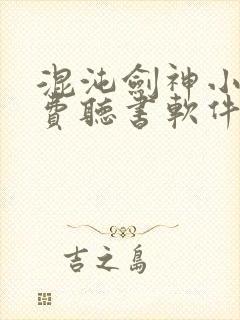 混沌劍神小
費聽書軟件
吉之島